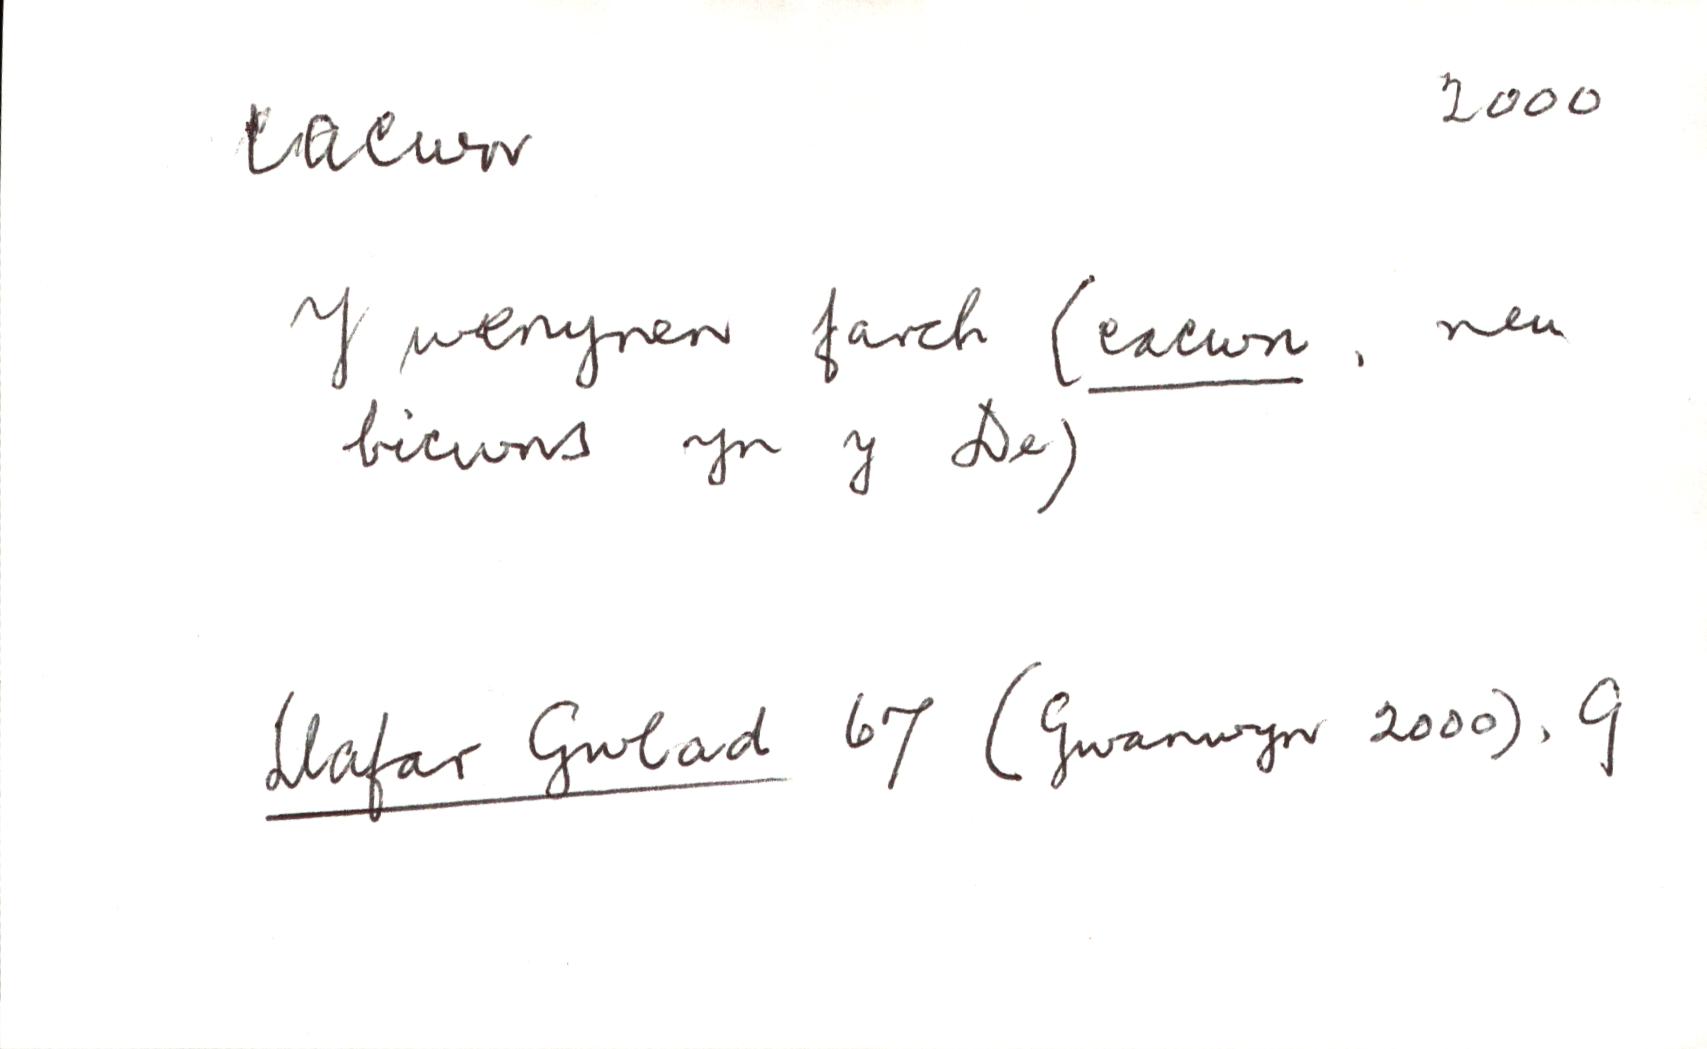 cacwn 2000
Y wenynen farch (cacwn, neu
bicwns yn y De)
Llafar Gwlad 67 (Gwanwyn 2000), 9